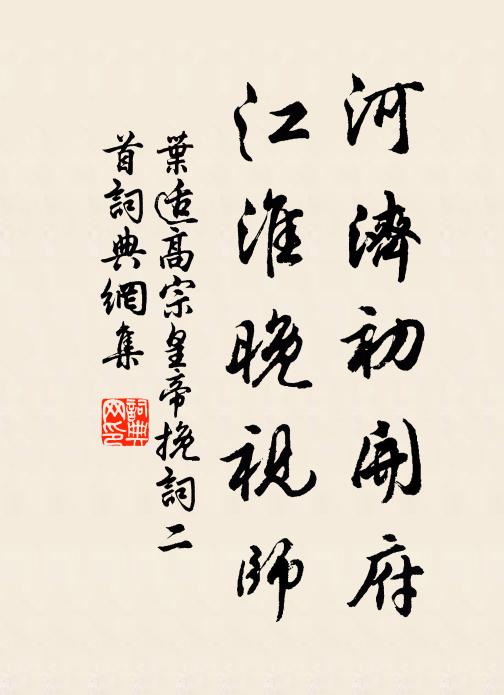 河濟初開府
江淮晚視師
葉適高宗皇帝挽詞二
首詞典網集
詞典網印